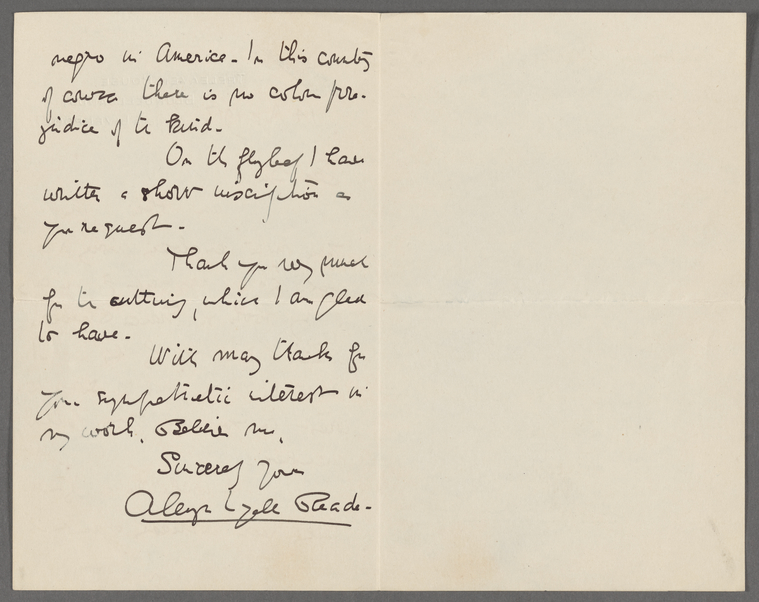 negro in America. In this country
of course there is no colour pre-
judice of the kind.
On the flyleaf I have
written a short inscription as
you request.
Thank you very much
for the cutting, which I am glad
to have.
With many thanks for
your sympathetic interest in
my work, Believe me,
Sincerely yours
Aleyn Lyell Reade.